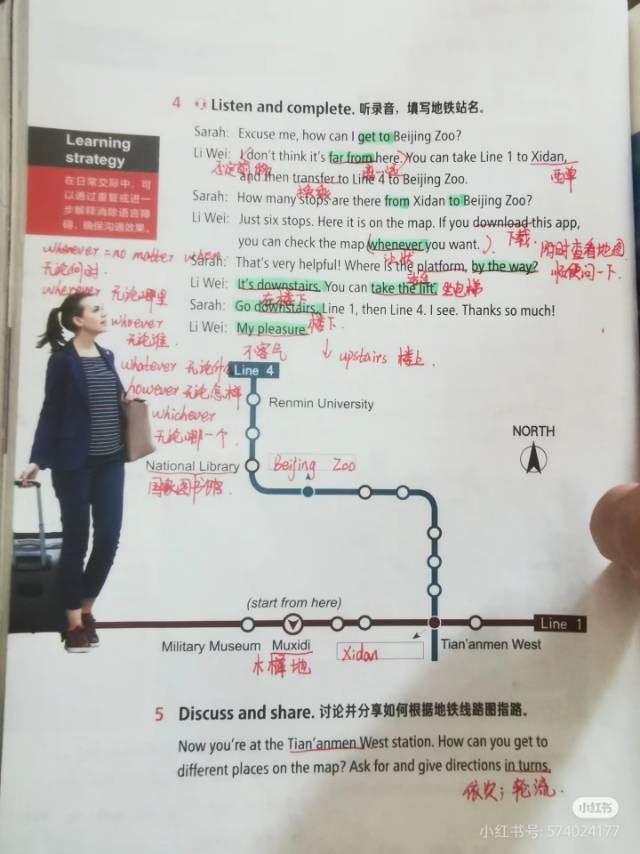 4 Listen and complete. 听录音，填写地铁站名。
Learning
strategy
在日常交际中，可
以通过重复或进一
步解释消除语言障
碍，确保沟通效果。
Sarah: Excuse me, how can I get to Beijing Zoo?
Li Wei: I don't think it's far from here. You can take Line 1 to Xidan,
西单
and then transfer to Line 4 to Beijing Zoo.
换乘
Sarah: How many stops are there from Xidan to Beijing Zoo?
Li Wei: Just six stops. Here it is on the map. If you download this app,
下载
you can check the map (whenever you want.)
随时查看地图
Sarah: That's very helpful! Where is the platform, by the way?
站台
顺便问一下.
Li Wei: It's downstairs. You can take the lift. 坐电梯
在楼下
Sarah: Go downstairs, Line 1, then Line 4. I see. Thanks so much!
Li Wei: My pleasure. 楼下
不客气
↓ upstairs 楼上.
whenever = no matter when
无论何时.
wherever 无论哪里
whoever
无论谁.
whatever 无论什
however 无论怎样
whichever
无论哪一个.
Line 4
Renmin University
NORTH
National Library
国家图书馆.
Beijing Zoo
(start from here)
Line 1
Military Museum
Muxidi
木樨地
Xidan
Tian'anmen West
5 Discuss and share. 讨论并分享如何根据地铁线路图指路。
Now you're at the Tian'anmen West station. How can you get to
different places on the map? Ask for and give directions in turns.
依次；轮流.
小红书
小红书号: 574024177